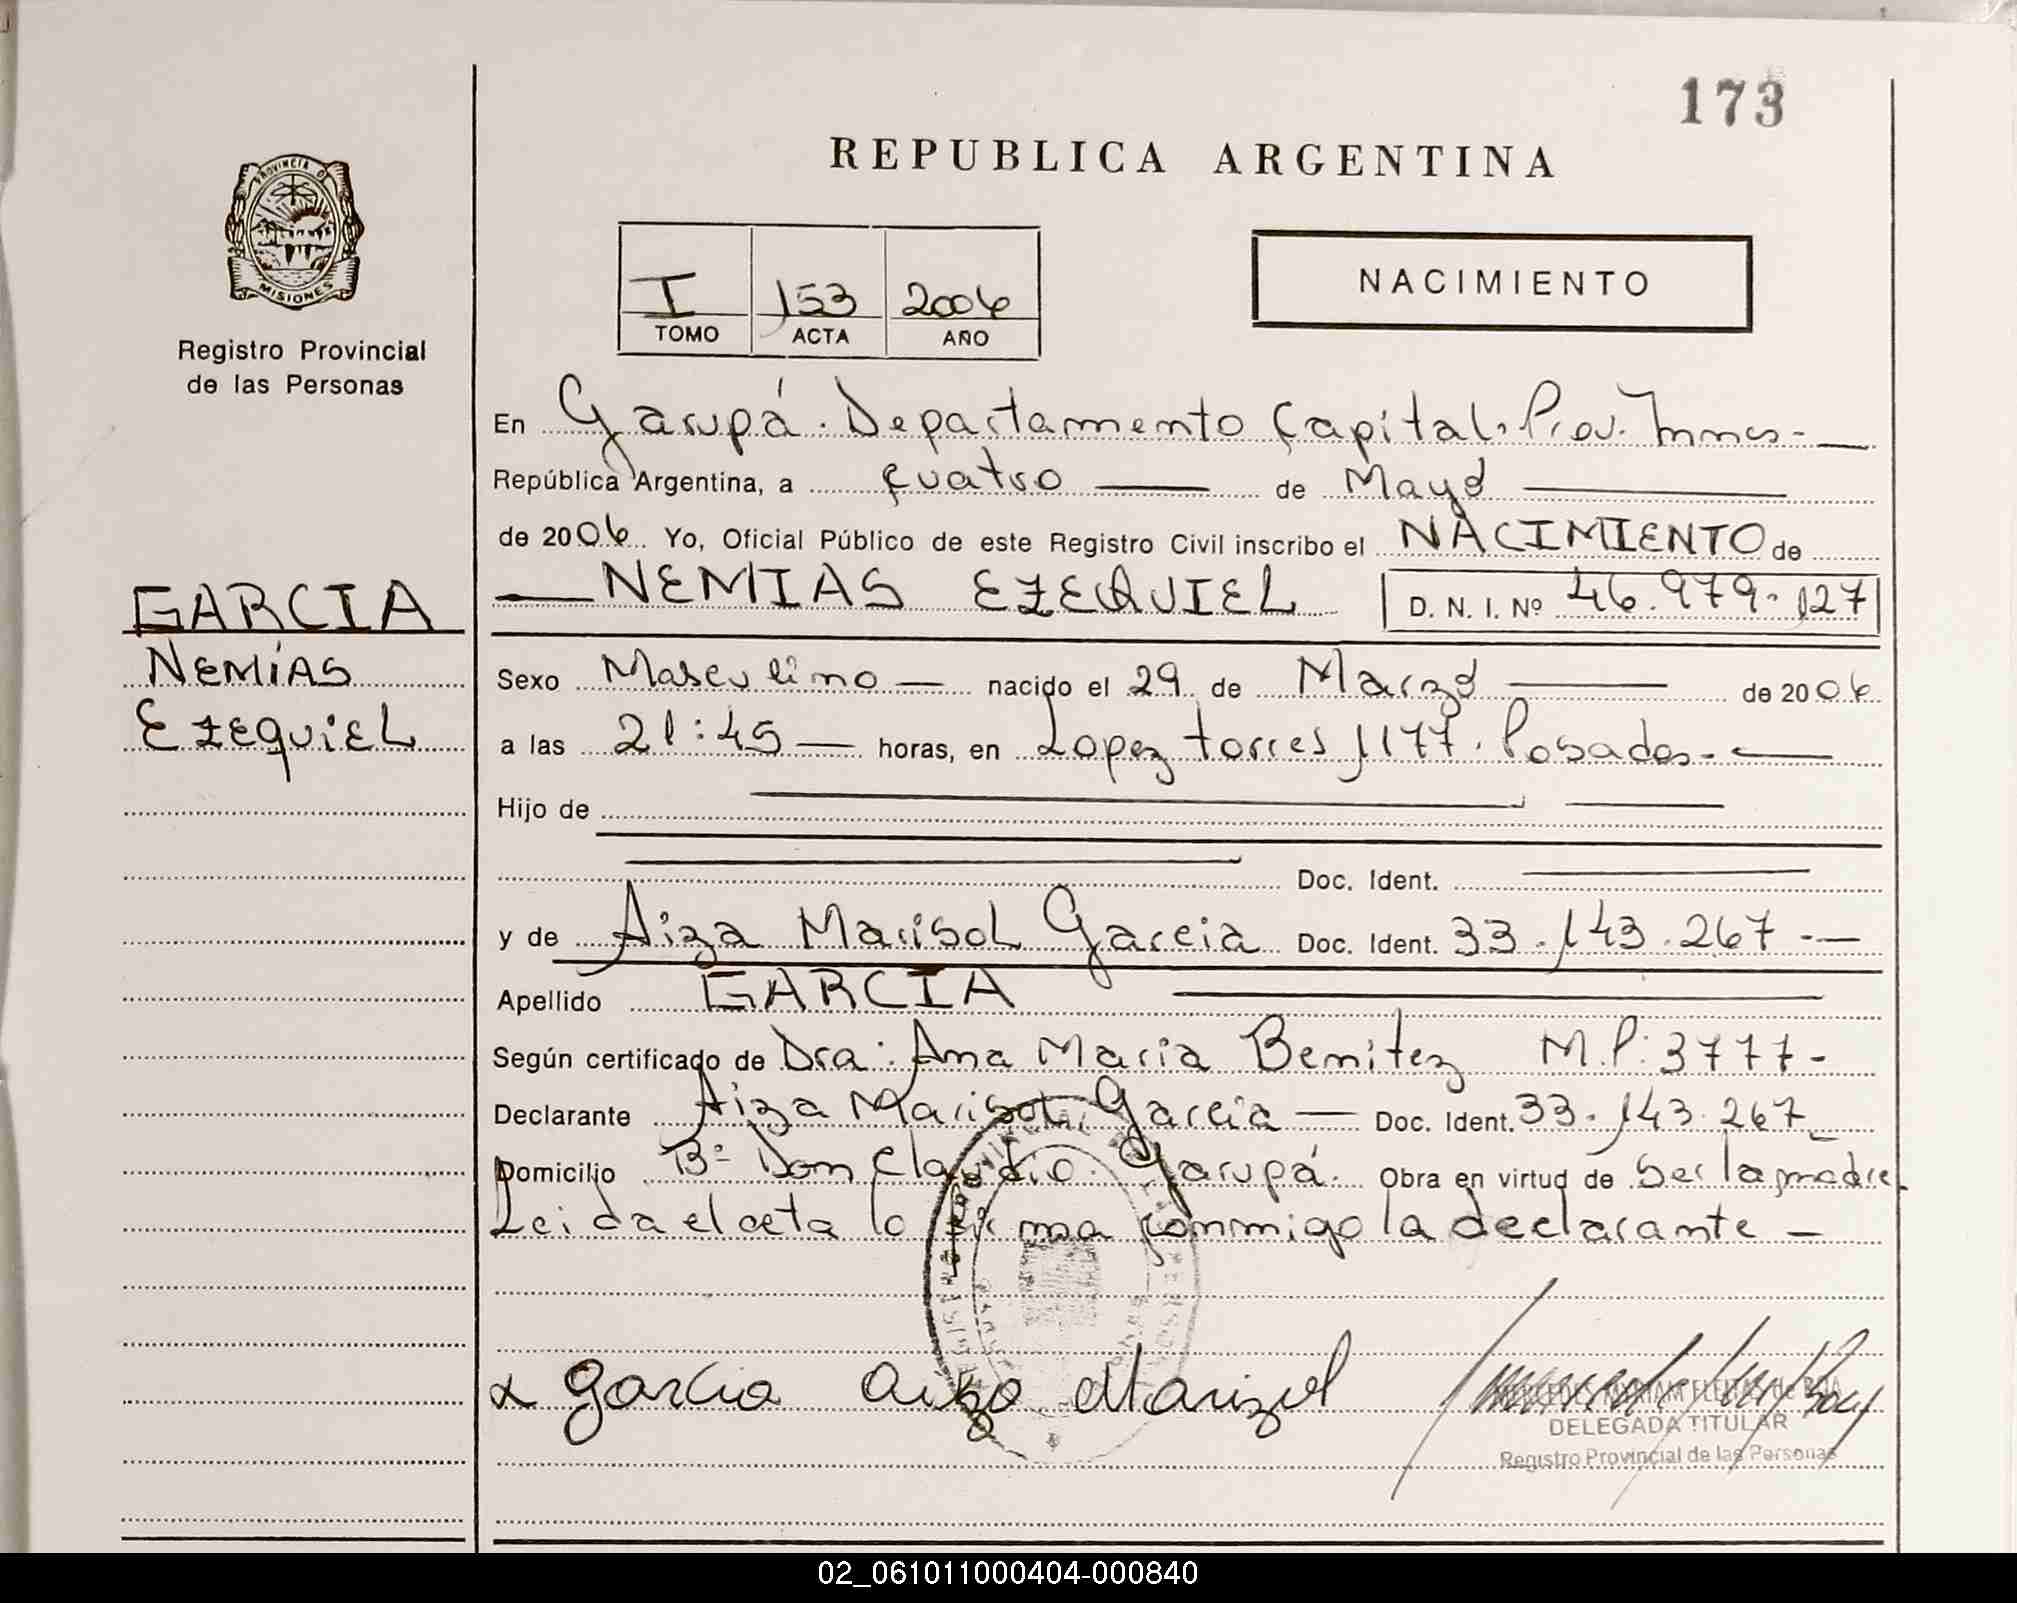 173
REPUBLICA ARGENTINA
PROVINCIA D
MISIONES
Registro Provincial
de las Personas
I 153 2006
TOMO ACTA AÑO
NACIMIENTO
En Garupá. Departamento Capital. Prov. Mnes-
República Argentina, a cuatro de Mayo
de 2006 Yo, Oficial Público de este Registro Civil inscribo el NACIMIENTO de
NEMIAS EZEQUIEL D. N. I. Nº 46.979.127
GARCIA
NEMÍAS
EZEQUIEL
Sexo Masculino nacido el 29 de Marzo de 2006
a las 21:45 horas, en Lopez torres 1177. Posadas-
Hijo de
Doc. Ident.
y de Aiza Marisol Garcia Doc. Ident. 33.143.267-
Apellido GARCIA
Según certificado de Dra: Ana Maria Benitez M.P: 3777-
Declarante Aiza Marisol Garcia Doc. Ident. 33.143.267
Domicilio Bº Don Claudio. Garupá. Obra en virtud de ser la madre
Leida el acta lo firma conmigo la declarante -
x Garcia Aiza Marizol
MERCEDES MYRIAM FLEITAS de ROA
DELEGADA TITULAR
Registro Provincial de las Personas
02_061011000404-000840